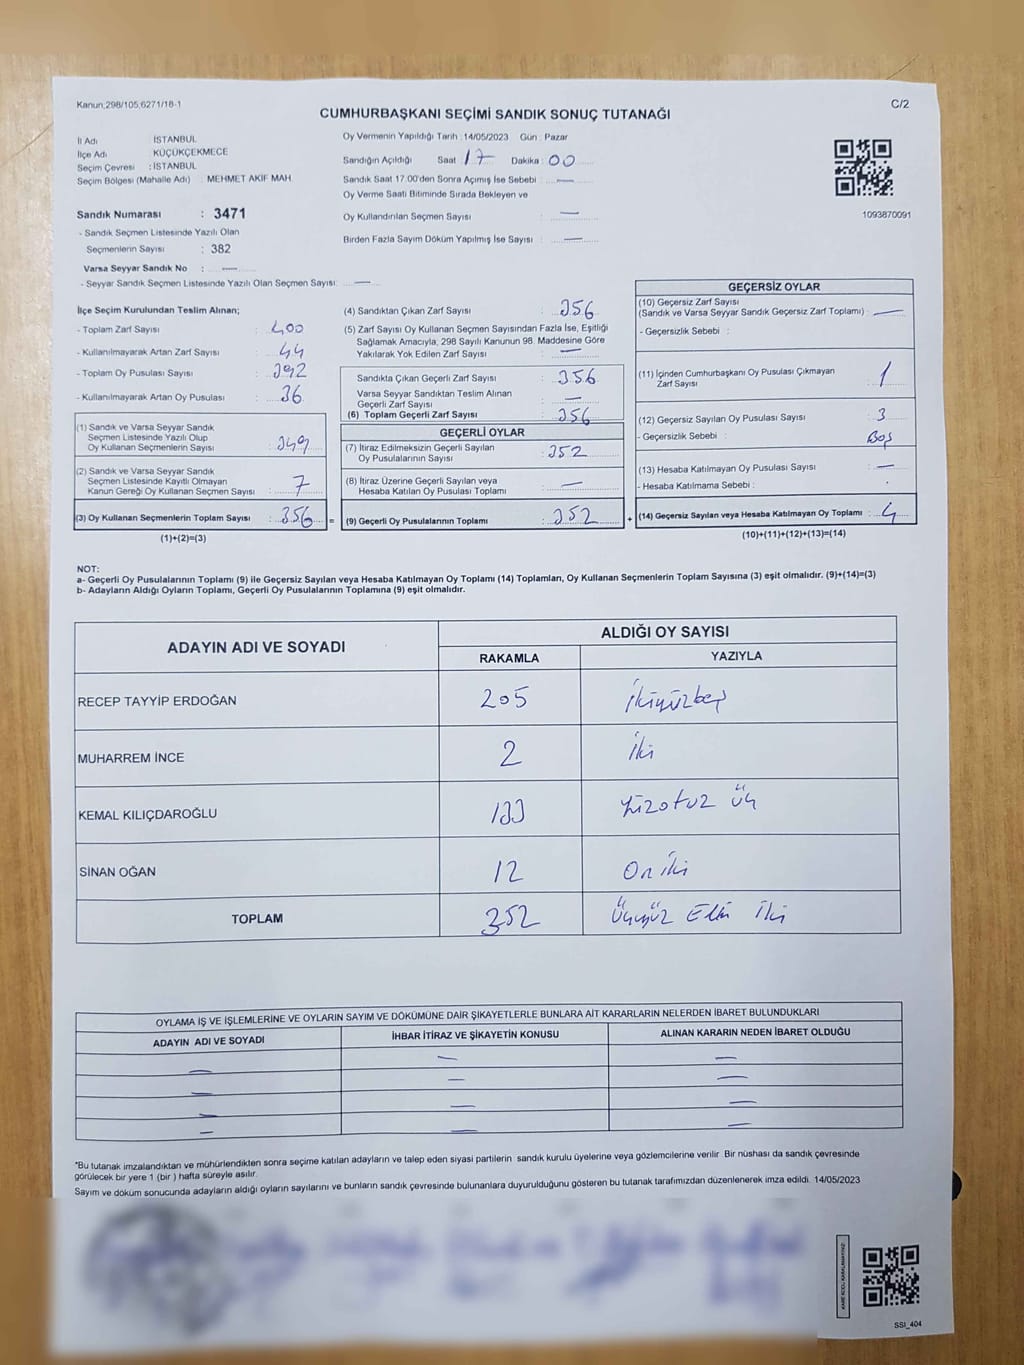 Kanun;298/105,6271/18-1
C/2
CUMHURBAŞKANI SEÇİMİ SANDIK SONUÇ TUTANAĞI
İl Adı : İSTANBUL
İlçe Adı : KÜÇÜKÇEKMECE
Seçim Çevresi : İSTANBUL
Seçim Bölgesi (Mahalle Adı) : MEHMET AKİF MAH.
Sandık Numarası : 3471
- Sandık Seçmen Listesinde Yazılı Olan
Seçmenlerin Sayısı : 382
Varsa Seyyar Sandık No : —
- Seyyar Sandık Seçmen Listesinde Yazılı Olan Seçmen Sayısı: —
Oy Vermenin Yapıldığı Tarih :14/05/2023 Gün : Pazar
Sandığın Açıldığı Saat 17 Dakika : 00
Sandık Saat 17.00'den Sonra Açımış İse Sebebi : —
Oy Verme Saati Bitiminde Sırada Bekleyen ve
Oy Kullandırılan Seçmen Sayısı : —
Birden Fazla Sayım Döküm Yapılmış İse Sayısı : —
1093870091
İlçe Seçim Kurulundan Teslim Alınan;
- Toplam Zarf Sayısı : 400
- Kullanılmayarak Artan Zarf Sayısı : 44
- Toplam Oy Pusulası Sayısı : 392
- Kullanılmayarak Artan Oy Pusulası : 36
(1) Sandık ve Varsa Seyyar Sandık
Seçmen Listesinde Yazılı Olup
Oy Kullanan Seçmenlerin Sayısı : 349
(2) Sandık ve Varsa Seyyar Sandık
Seçmen Listesinde Kayıtlı Olmayan
Kanun Gereği Oy Kullanan Seçmen Sayısı : 7
(3) Oy Kullanan Seçmenlerin Toplam Sayısı : 356 =
(1)+(2)=(3)
(4) Sandıktan Çıkan Zarf Sayısı : 356
(5) Zarf Sayısı Oy Kullanan Seçmen Sayısından Fazla İse, Eşitliği
Sağlamak Amacıyla, 298 Sayılı Kanunun 98. Maddesine Göre
Yakılarak Yok Edilen Zarf Sayısı : —
Sandıkta Çıkan Geçerli Zarf Sayısı : 356
Varsa Seyyar Sandıktan Teslim Alınan
Geçerli Zarf Sayısı : —
(6) Toplam Geçerli Zarf Sayısı : 356
GEÇERLİ OYLAR
(7) İtiraz Edilmeksizin Geçerli Sayılan
Oy Pusulalarının Sayısı : 352
(8) İtiraz Üzerine Geçerli Sayılan veya
Hesaba Katılan Oy Pusulası Toplamı : —
(9) Geçerli Oy Pusulalarının Toplamı : 352 +
GEÇERSİZ OYLAR
(10) Geçersiz Zarf Sayısı
(Sandık ve Varsa Seyyar Sandık Geçersiz Zarf Toplamı) : —
- Geçersizlik Sebebi :
(11) İçinden Cumhurbaşkanı Oy Pusulası Çıkmayan
Zarf Sayısı : 1
(12) Geçersiz Sayılan Oy Pusulası Sayısı : 3
- Geçersizlik Sebebi : Boş
(13) Hesaba Katılmayan Oy Pusulası Sayısı : —
- Hesaba Katılmama Sebebi :
(14) Geçersiz Sayılan veya Hesaba Katılmayan Oy Toplamı : 4
(10)+(11)+(12)+(13)=(14)
NOT:
a- Geçerli Oy Pusulalarının Toplamı (9) ile Geçersiz Sayılan veya Hesaba Katılmayan Oy Toplamı (14) Toplamları, Oy Kullanan Seçmenlerin Toplam Sayısına (3) eşit olmalıdır. (9)+(14)=(3)
b- Adayların Aldığı Oyların Toplamı, Geçerli Oy Pusulalarının Toplamına (9) eşit olmalıdır.
ADAYIN ADI VE SOYADI
ALDIĞI OY SAYISI
RAKAMLA YAZIYLA
RECEP TAYYİP ERDOĞAN 205 İkiyüzbeş
MUHARREM İNCE 2 İki
KEMAL KILIÇDAROĞLU 133 Yüzotuz üç
SİNAN OĞAN 12 On iki
TOPLAM 352 Üçyüz Elli İki
OYLAMA İŞ VE İŞLEMLERİNE VE OYLARIN SAYIM VE DÖKÜMÜNE DAİR ŞİKAYETLERLE BUNLARA AİT KARARLARIN NELERDEN İBARET BULUNDUKLARI
ADAYIN ADI VE SOYADI İHBAR İTİRAZ VE ŞİKAYETİN KONUSU ALINAN KARARIN NEDEN İBARET OLDUĞU
— — —
— — —
— — —
— — —
*Bu tutanak imzalandıktan ve mühürlendikten sonra seçime katılan adayların ve talep eden siyasi partilerin sandık kurulu üyelerine veya gözlemcilerine verilir. Bir nüshası da sandık çevresinde
görülecek bir yere 1 (bir ) hafta süreyle asılır.
Sayım ve döküm sonucunda adayların aldığı oyların sayılarını ve bunların sandık çevresinde bulunanlara duyurulduğunu gösteren bu tutanak tarafımızdan düzenlenerek imza edildi. 14/05/2023
KARE KODU KARALAMAYINIZ!
SSI_404